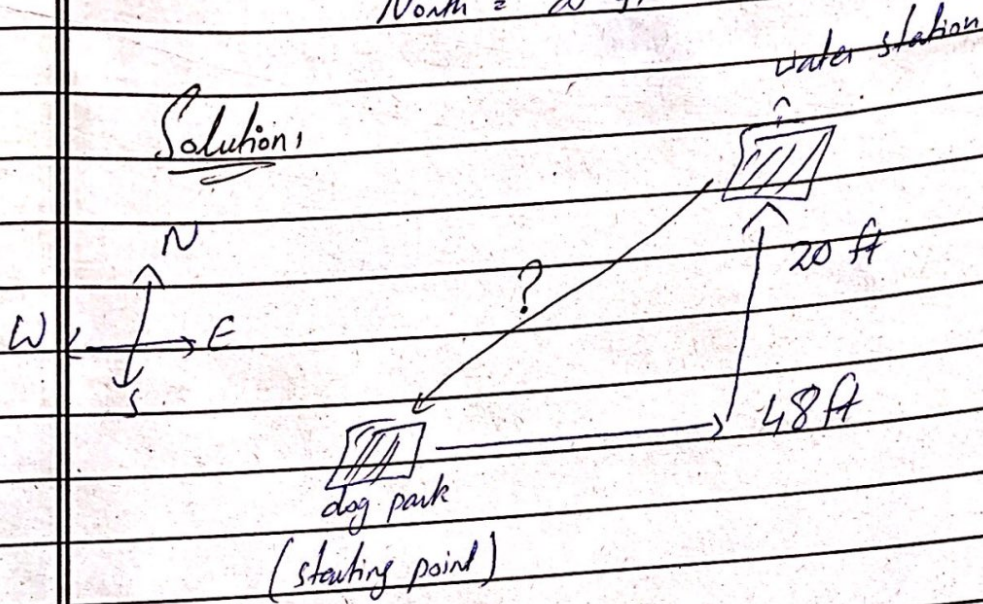 North =
water station
Solution,
N
20 ft
?
W E
S
48 ft
dog park
(starting point)